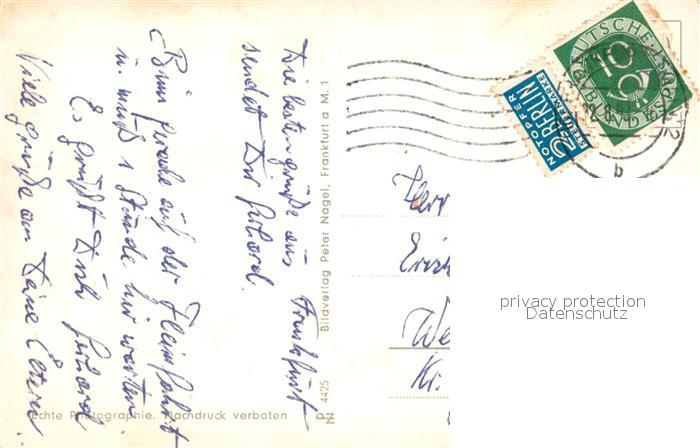 Die besten Grüße aus Frankfurt
sendet Dir Gerhard.
Bin gerade auf der Heimfahrt
u. muß 1 Stunde hier warten
Es grüßt Dich Gerhard
Viele Grüße an Deine Eltern.
Echte Photographie. Nachdruck verboten
N 4425 Bildverlag Peter Nagel, Frankfurt a M. 1
DEUTSCHE BUNDESPOST
10
NOTOPFER
2 BERLIN
STEUERMARKE
b
Herr
Erich
We
Kr.
privacy protection
Datenschutz